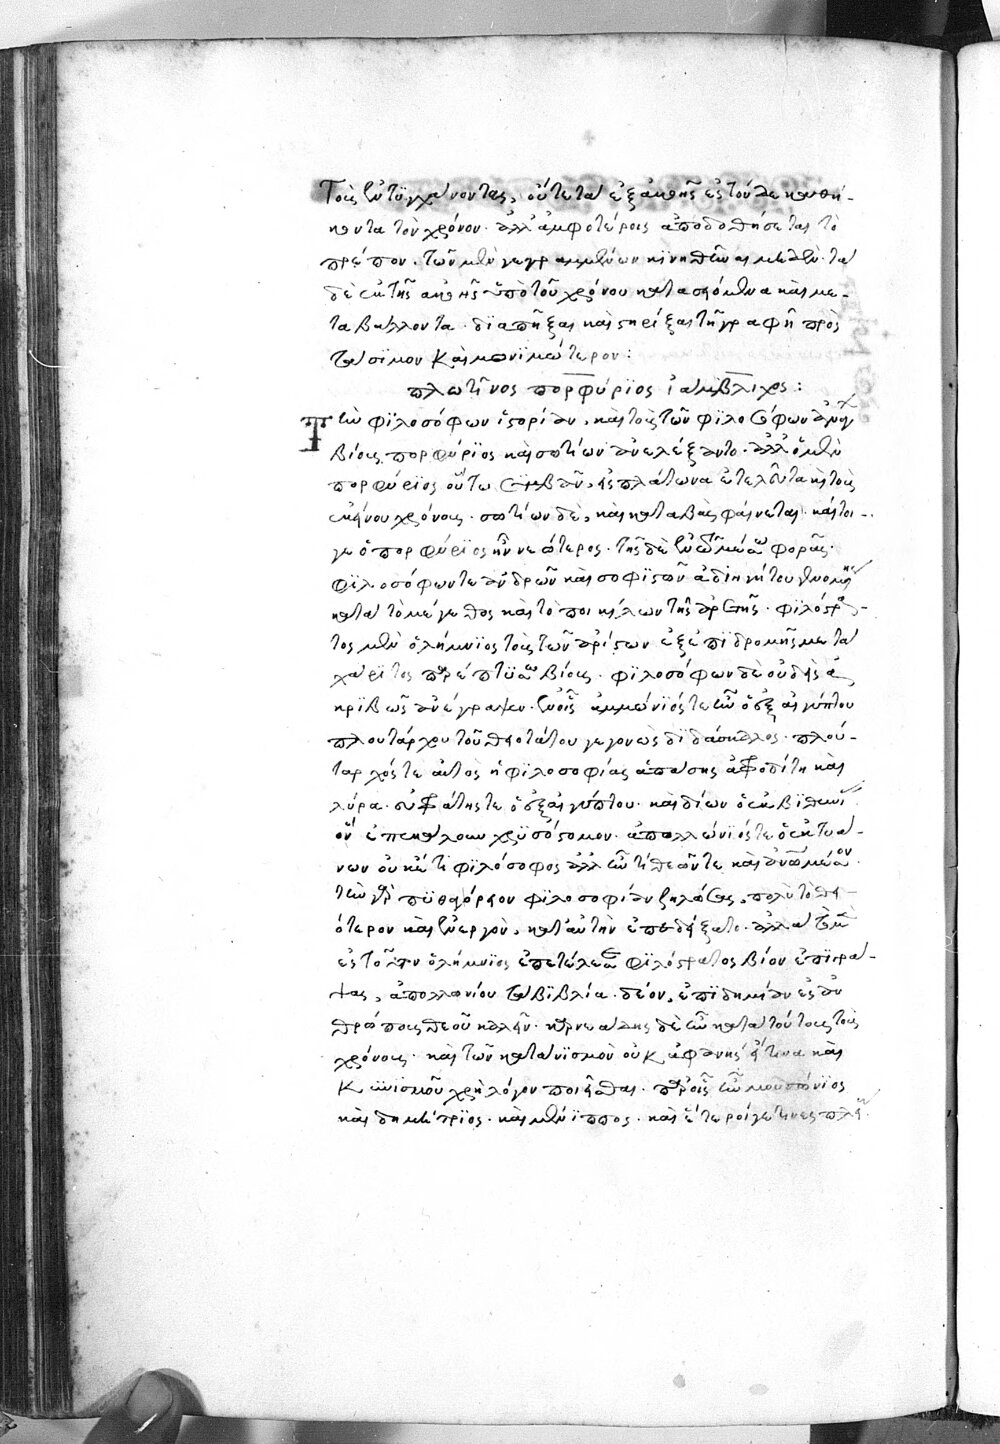 τοὺς ἐντυγχάνοντας, οὔτε τὰ ἐξ ἀκοῆς ἐς τόνδε καθή-
κοντα τὸν χρόνον· ἀλλ' ἀμφοτέροις ἀποδοθήσεται τὸ
πρέπον· τῶν μὲν γεγραμμένων κινηθῆναι μηδέν· τὰ
δὲ ἐκ τῆς ἀκοῆς ὑπὸ τοῦ χρόνου κατασειόμενα καὶ με-
ταβάλλοντα· διαπῆξαι καὶ στηρίξαι τῇ γραφῇ πρὸς
τὸ στάσιμον καὶ μονιμώτερον:
πλωτῖνος πορφύριος ἰάμβλιχος:
Τὴν φιλοσόφων ἱστορίαν, καὶ τοὺς τῶν φιλοσόφων ἀνδρῶν
βίους πορφύριος καὶ σωτίων ἀνελέξαντο· ἀλλ' ὁ μὲν
πορφύριος οὕτω συμβὰν, εἰς πλάτωνα ἐτελεύτα καὶ τοὺς
ἐκείνου χρόνους· σωτίων δὲ, καὶ καταβὰς φαίνεται· καίτοι-
γε ὁ πορφύριος ἦν νεώτερος· τῆς δὲ ἐν τῷ μέσῳ φορᾶς·
φιλοσόφων τε ἀνδρῶν καὶ σοφιστῶν ἀδιηγήτου γενομένης
κατὰ τὸ μέγεθος καὶ τὸ ποικίλον τῆς ἀρετῆς· φιλόστρα-
τος μὲν ὁ λήμνιος τοὺς τῶν ἀρίστων ἐξ ἐπιδρομῆς μετὰ
χάριτος παρέπτυσε βίους· φιλοσόφων δὲ οὐδεὶς ἀ-
κριβῶς ἀνέγραψεν· ἐν οἷς ἀμμώνιός τε ἦν ὁ ἐξ αἰγύπτου
πλουτάρχου τοῦ θειοτάτου γεγονὼς διδάσκαλος· πλού-
ταρχός τε αὐτὸς ἡ φιλοσοφίας ἁπάσης ἀφροδίτη καὶ
λύρα· εὐφράτης τε ὁ ἐξ αἰγύπτου· καὶ δίων ὁ ἐκ βιθυνίας
ὃν ἐπεκάλουν χρυσόστομον· ἀπολλώνιός τε ὁ ἐκ τυά-
νων οὐκέτι φιλόσοφος ἀλλ' ἦν τι θεῶν τε καὶ ἀνθρώπου μέσον·
τὴν γὰρ πυθαγόρειον φιλοσοφίαν ζηλώσας, πολὺ τὸ θει-
ότερον καὶ ἐνεργὸν, κατ' αὐτὴν ἐπεδείξατο· ἀλλὰ τὸ μὲν
ἐς τοῦτον ὁ λήμνιος ἐπετέλεσε φιλόστρατος βίον ἐπιγρά-
ψας, ἀπολλωνίου τὰ βιβλία· δέον, ἐπιδημίαν ἐς ἀν
θρώπους θεοῦ καλεῖν· καρνεάδης δὲ ἦν κατὰ τούτους τοὺς
χρόνους· καὶ τῶν κατὰ κυνισμὸν οὐκ ἀφανὴς εἴ τινα καὶ
κυνισμοῦ χρὴ λόγον ποιεῖσθαι· παρ' οἷς ἦν μουσώνιος
καὶ δημήτριος· καὶ μένιππος· καὶ ἕτεροί γέ τινες πλείους·